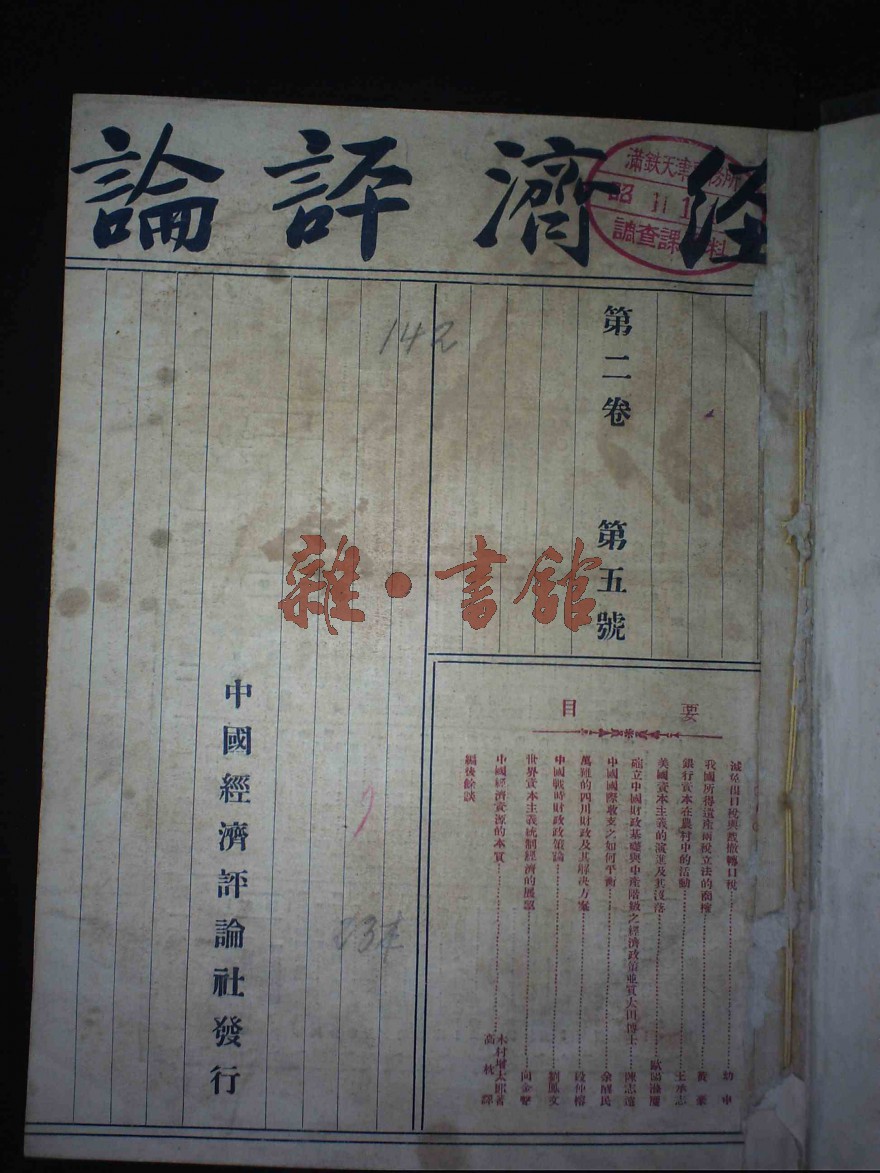 經濟評論
滿鉄天津事務所
昭 11.1
調查課 料
第二卷 第五號
142
要目
減免出口稅與裁撤轉口稅 幼申
我國所得遺產兩稅立法的商榷 黃
銀行資本在農村中的活動 王承志
美國資本主義的演進及其沒落 歐陽
確立中國財政基礎與中產階級之經濟政策並質太田博士 陳志遠
中國國際收支之如何平衡 余醒民
萬難的四川財政及其解決方案 段仲榕
中國戰時財政政策論 劉鳳文
世界資本主義統制經濟的展望 向金聲
中國經濟資源的本質 木村增太郎著 高牧譯
編後餘談
雜·書館
中國經濟評論社發行